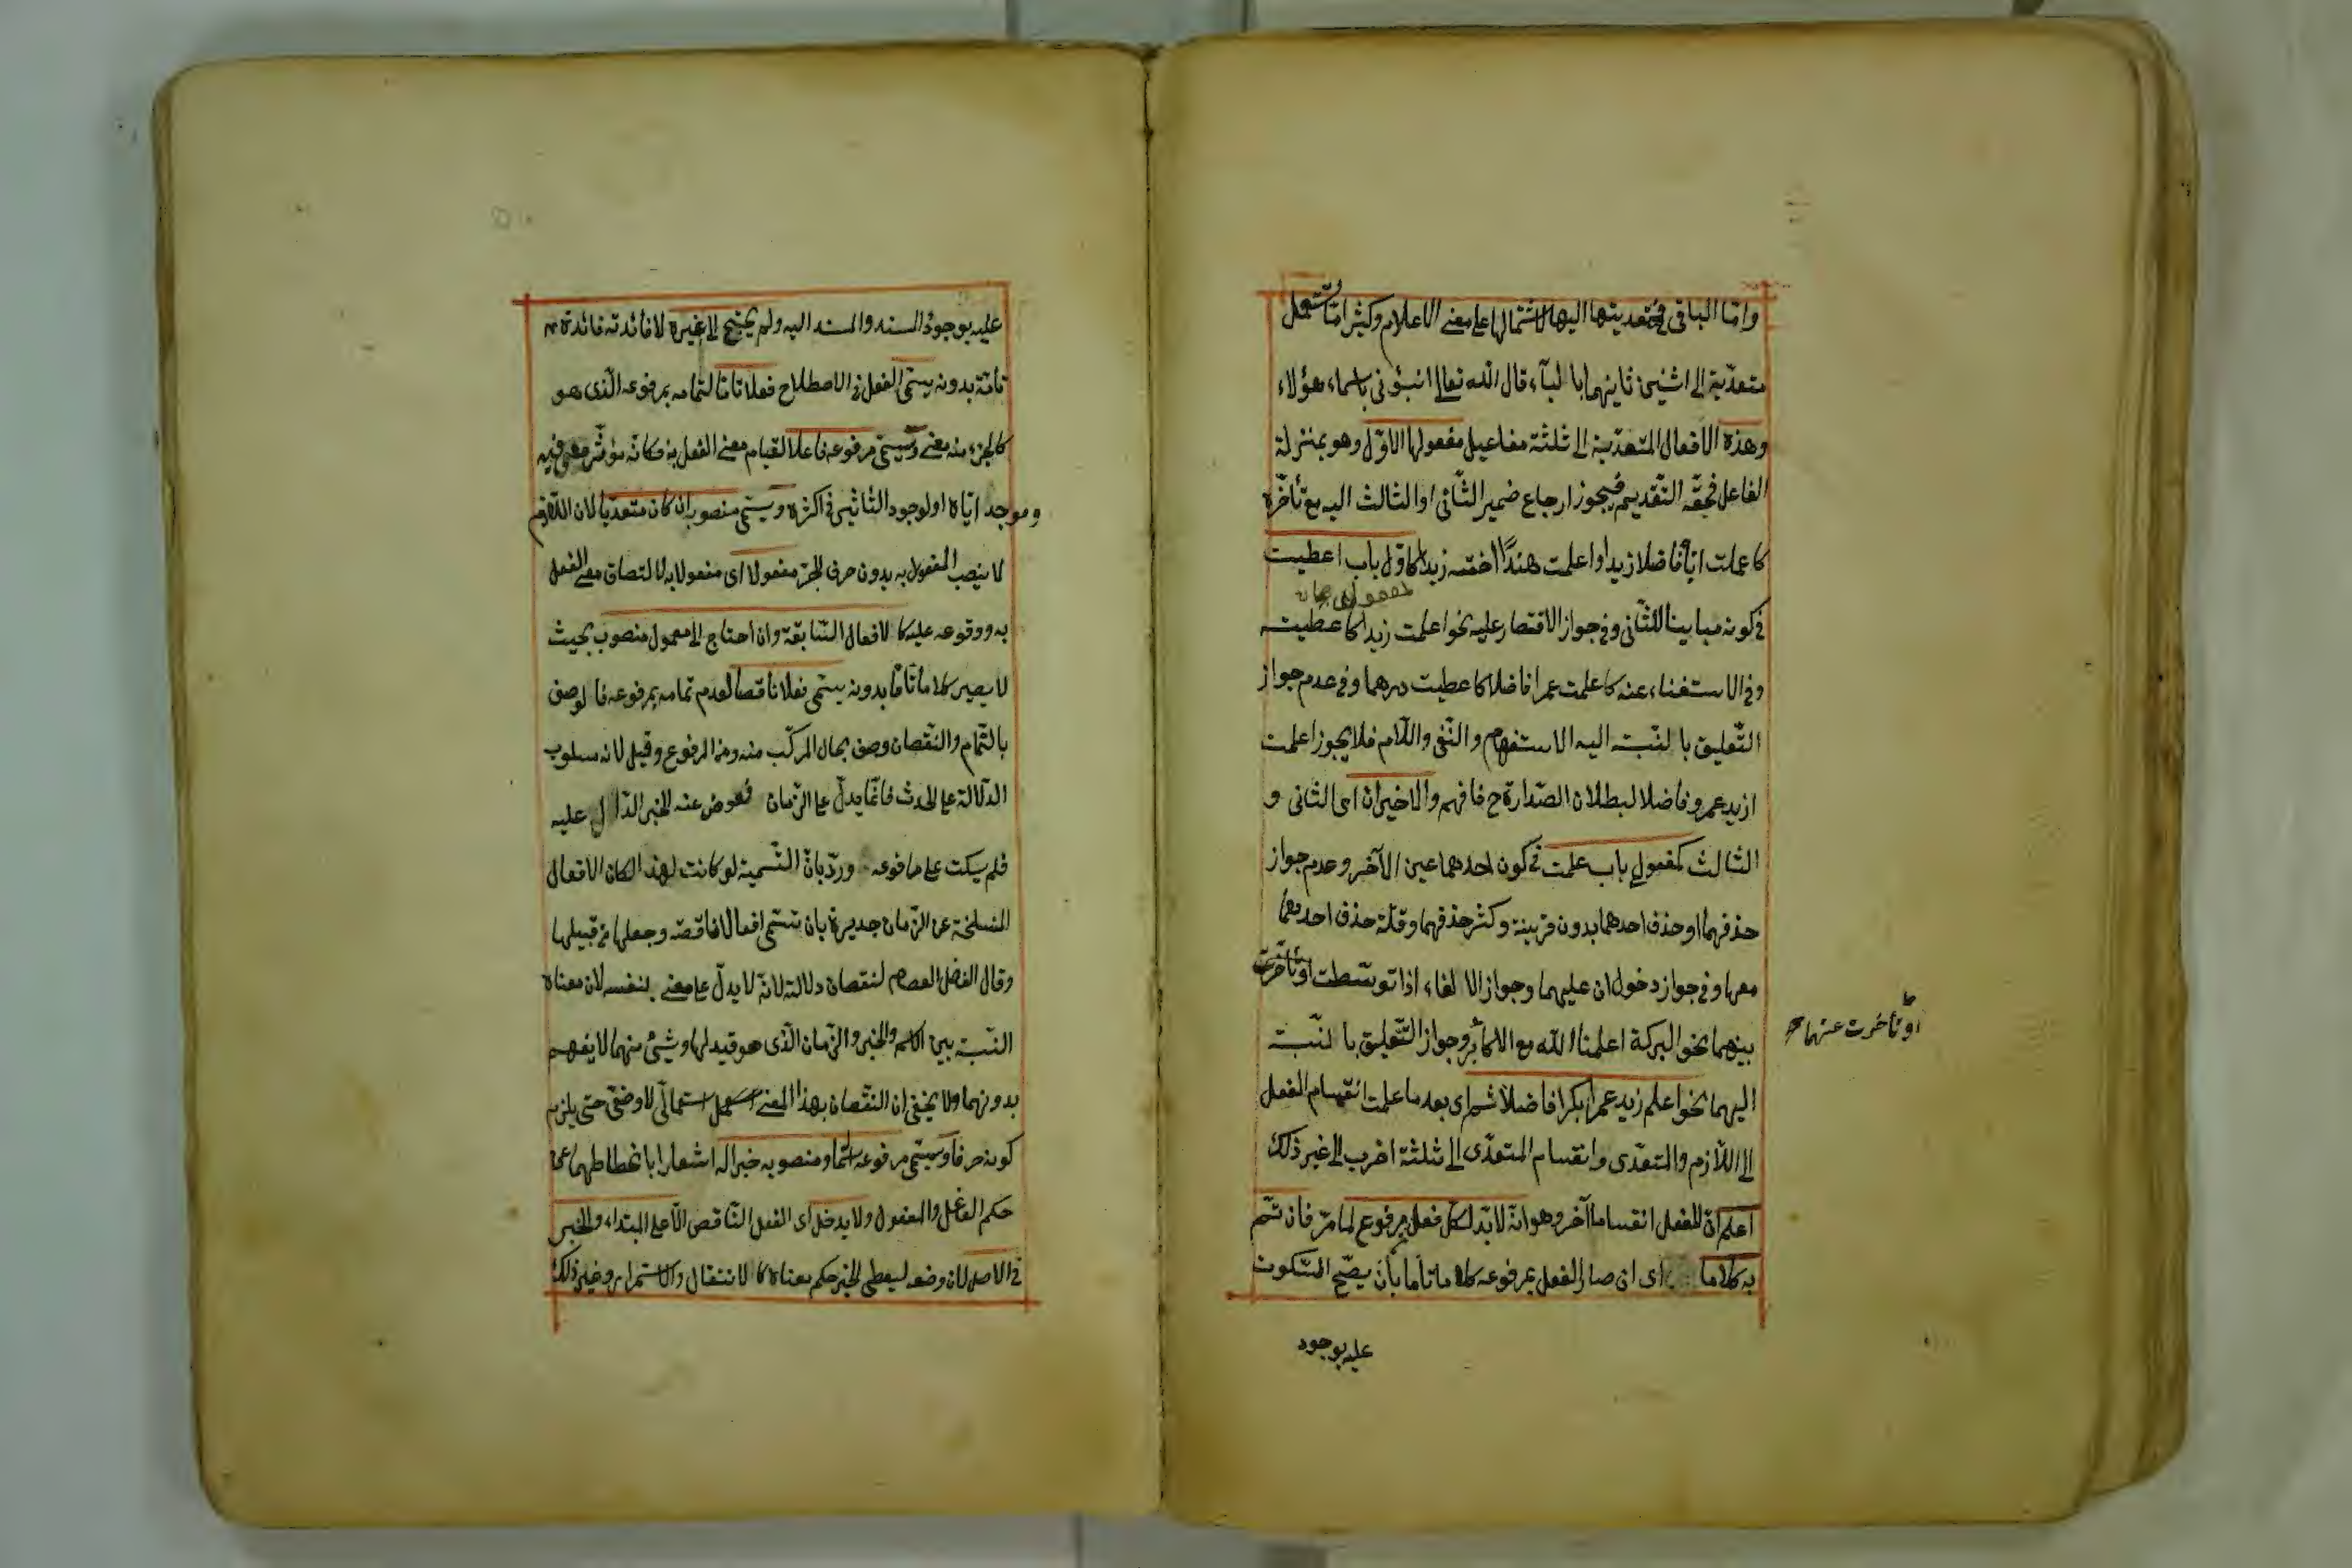 واما الباقى فتعديتها اليها لاشتمالها على معنى الاعلام وكثيرا ما تستعمل
متعدّية الى اثنين ثانيهما بالبآء قال الله تعالى انبؤنى باسماء هؤلاء
وهذه الافعال المتعدّية الى ثلثة مفاعيل مفعولها الاوّل وهو بمنزلة
الفاعل فحقّه التّقديم فيجوز ارجاع ضمير الثّانى او الثالث اليه مع تأخّره
كاعلمت ايّاه فاضلا زيدا واعلمت هندًا اخته زيدا كاوّل باب اعطيت
مفعولى
فى كونه مباينا للثّانى وفى جواز الاقتصار عليه نحو اعلمت زيدا كاعطيت
وفى الاستغناء عنه كاعلمت عمرا فاضلا كاعطيت درهما وفى عدم جواز
التّعليق بالنسبة اليه الاستفهام والنّفى واللّام فلا يجوز اعلمت
ازيد عمرو فاضلا لبطلان الصّدارة ح فافهم والاخيران اى الثانى و
الثالث كمفعولى باب علمت فى كون احدهما عين الآخر وعدم جواز
حذفهما او حذف احدهما بدون قرينة وكثر حذفهما وقلّة حذف احدهما
معها وفى جواز دخول ان عليهما وجواز الالغاء اذا توسّطت او تأخّرت
او تأخرت عنهما
بينهما نحو البركة اعلمنا الله مع الاكابر وجواز التّعليق بالنسبة
اليهما نحو اعلم زيد عمرا بكرا فاضلا ثم اى بعد ما علمت انقسام الفعل
الى اللّازم والمتعدّى وانقسام المتعدّى الى ثلثة اضرب الى غير ذلك
اعلم انّ للفعل انقساما آخر وهو انّه لا بدّ لكل فعل من مرفوع لما مرّ فان تمّ
به كلاما اى ان صار الفعل بمرفوعه كلاما تاما بأن يصحّ السّكوت
عليه بوجود
عليه بوجود المسند والمسند اليه ولم يحتج الى غيره لافائدته فائدة
تامّة بدونه يسمّى الفعل فى الاصطلاح فعلا تامّا لتمامه بمرفوعه الّذى هو
كالجزء منه معنى ويسمّى مرفوعه فاعلا لقيام معنى الفعل به فكانّه مؤثّر معنى فيه
وموجد ايّاه او لوجود التّأثير فى اكثره ويسمّى منصوبه ان كان متعدّيا لان اللّازم
لا ينصب المفعول به بدون حرف الجرّ مفعولا اى مفعولا به لالتصاق معنى الفعل
به ووقوعه عليه كالافعال السّابقة وان احتاج الى معمول منصوب بحيث
لا يصير كلاما تامّا بدونه يسمّى فعلا ناقصا لعدم تمامه بمرفوعه فالوصف
بالتّمام والنّقصان وصف بحال المركّب منه ومن المرفوع وقيل لانه مسلوب
الدّلالة على الحدث فانّما يدلّ على الزّمان فعوض عنه الخبر الدّال عليه
فلم يسكت على مرفوعه وردّ بانّ التّسمية لو كانت لهذا لكان الافعال
المنسلخة عن الزّمان جديرة بان تسمّى افعالا ناقصة وجعلها من قبيلها
وقال الفاضل العصام لنقصان دلالته لانّه لا يدلّ على معنى بنفسه لان معناه
النّسبة بين الاسم والخبر والزّمان الّذى هو قيد لها وشئ منهما لا يفهم
بدونهما ولا يخفى ان النقصان بهذا المعنى استعمالىّ لا وضعىّ حتى يلزم
كونه حرفا ويسمّى مرفوعه اسما ومنصوبه خبرا له اشعارا بانحطاطهما عن
حكم الفاعل والمفعول ولا يدخل اى الفعل النّاقص الّا على المبتداء والخبر
فى الاصل لان وضعه ليعطى الخبر حكم معناه كالانتقال والاستمرار وغير ذلك